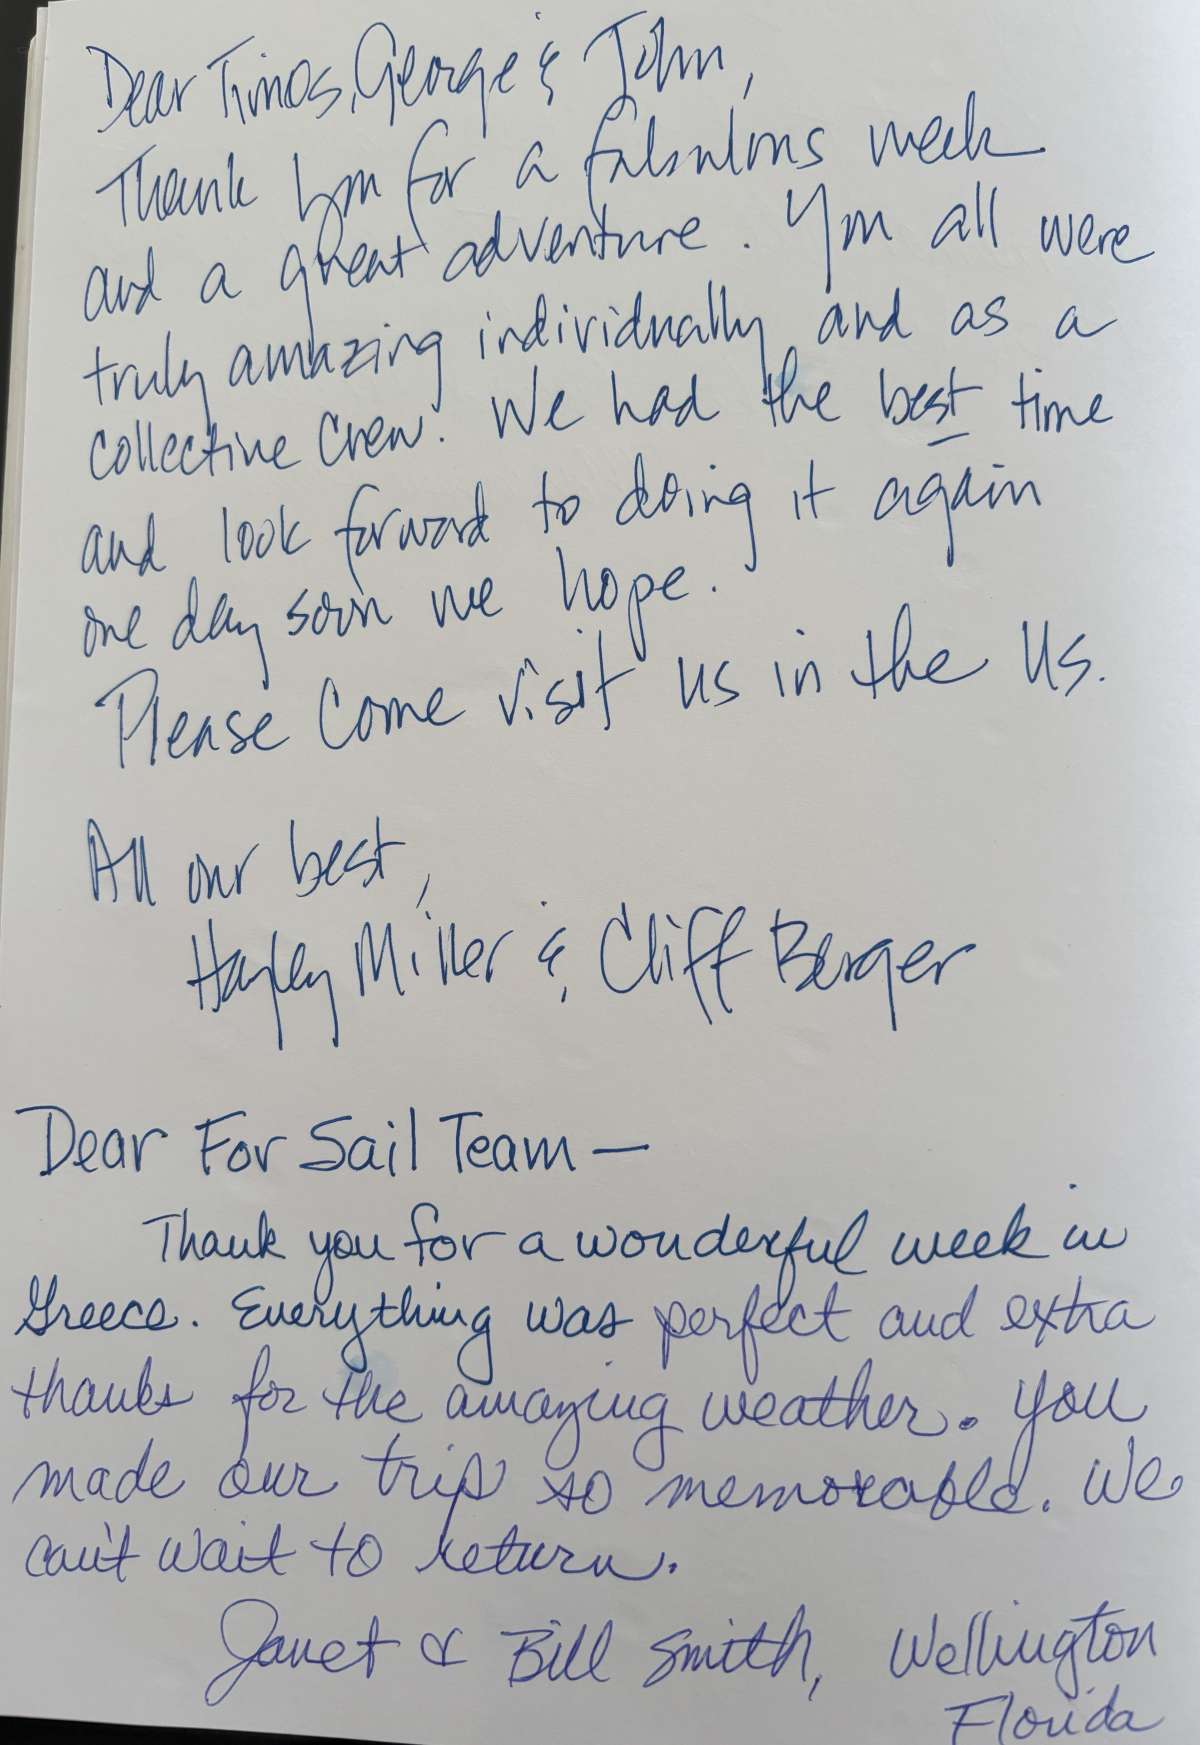 Dear Timos, George & John,
Thank you for a fabulous week
and a great adventure. You all were
truly amazing individually and as a
collective crew. We had the best time
and look forward to doing it again
one day soon we hope.
Please come visit us in the US.
All our best,
Hayley Miller & Cliff Berger
Dear For Sail Team —
Thank you for a wonderful week in
Greece. Everything was perfect and extra
thanks for the amazing weather. You
made our trip so memorable. We
can't wait to return.
Janet & Bill Smith, Wellington
Florida